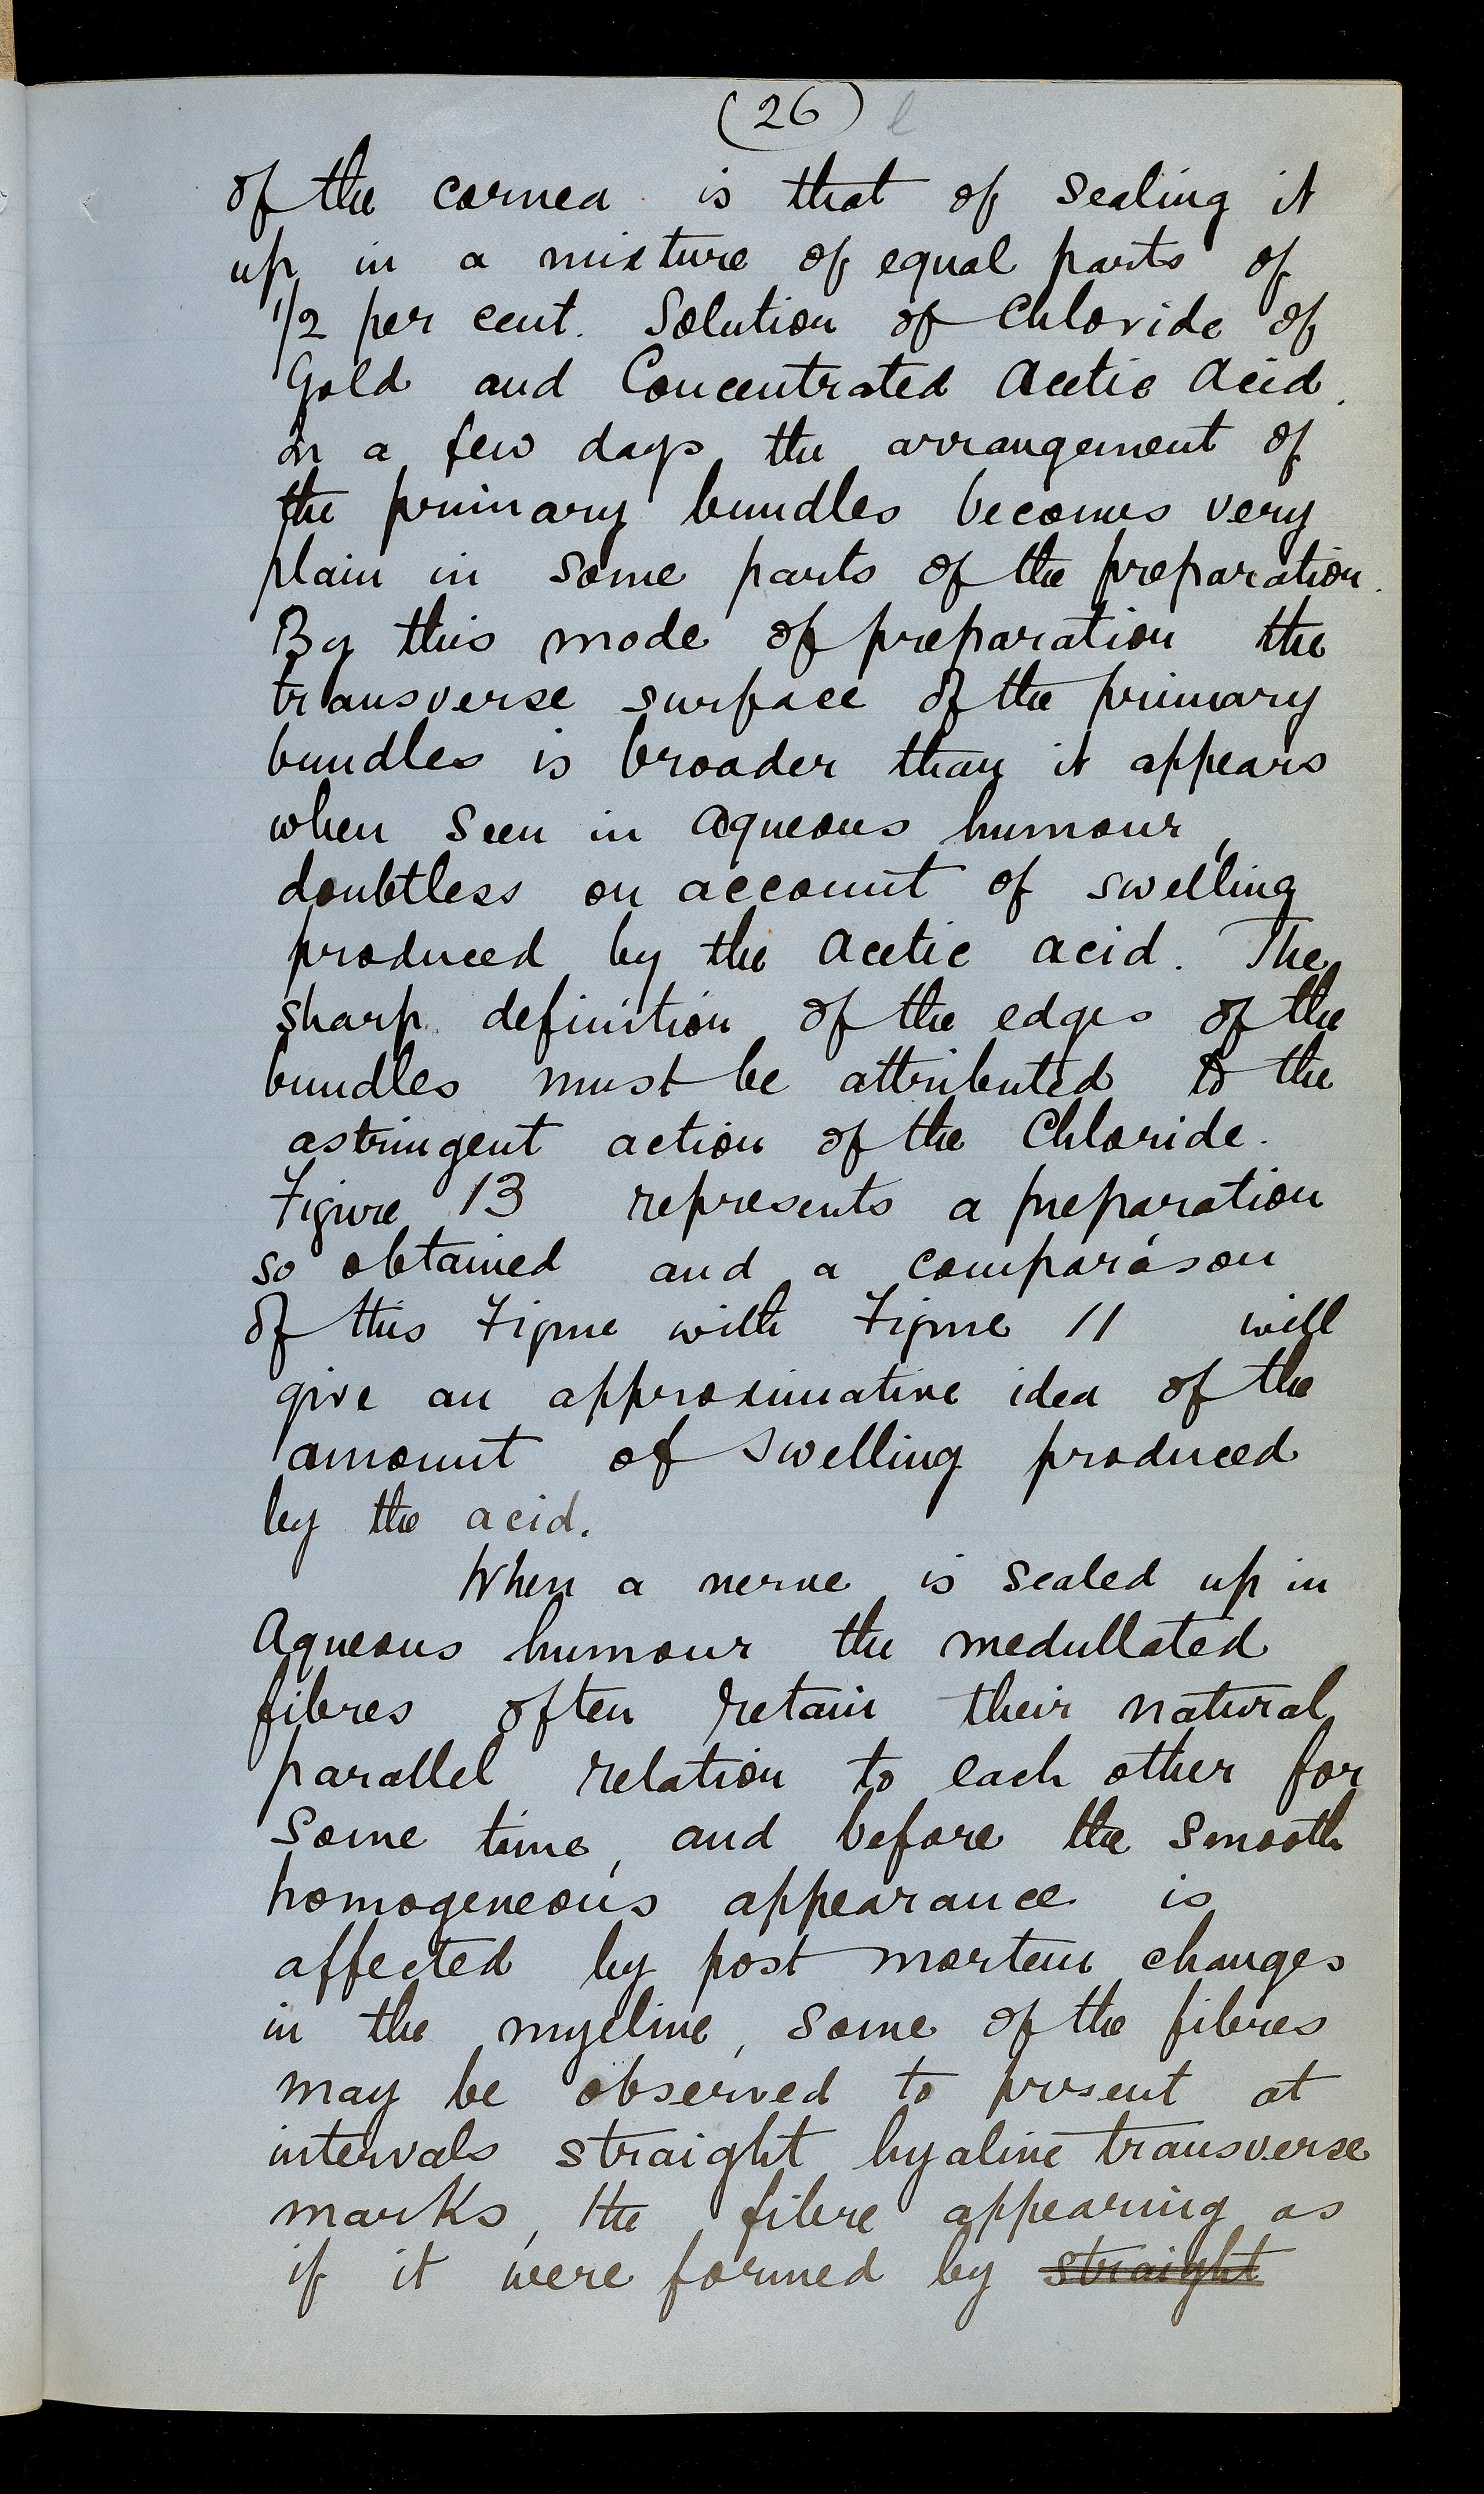 (26)
of the cornea is that of sealing it
up in a mixture of equal parts of
1/2 per cent. Solution of Chloride of
Gold and Concentrated Acetic Acid.
In a few days the arrangement of
the primary bundles becomes very
plain in some parts of the preparation.
By this mode of preparation the
transverse surface of the primary
bundles is broader than it appears
when seen in aqueous humour,
doubtless on account of swelling
produced by the acetic acid. The
sharp definition of the edges of the
bundles must be attributed to the
astringent action of the Chloride.
Figure 13 represents a preparation
so obtained and a comparason
of this Figure with Figure 11 will
give an approximative idea of the
amount of swelling produced
by the acid.
When a nerve is sealed up in
Aqueous humour the medullated
fibres often retain their natural
parallel relation to each other for
some time, and before the smooth
homogeneous appearance is
affected by post mortem changes
in the myeline, some of the fibres
may be observed to present at
intervals straight hyaline transverse
marks, the fibre appearing as
if it were formed by straight